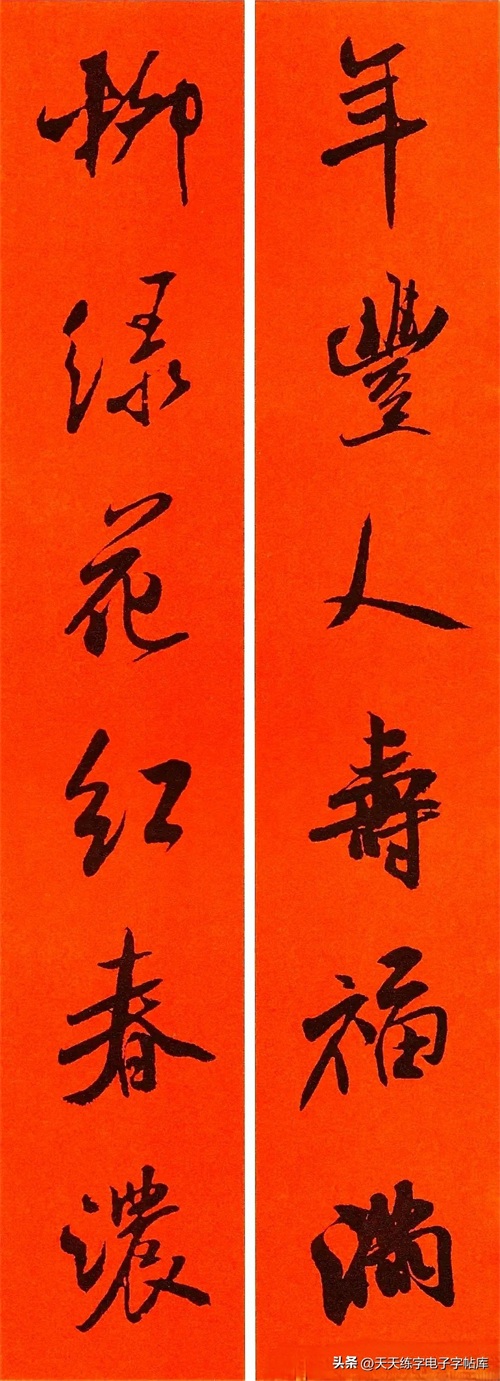 年豐人壽福滿
柳绿花红春濃
头条 @天天练字电子字帖库